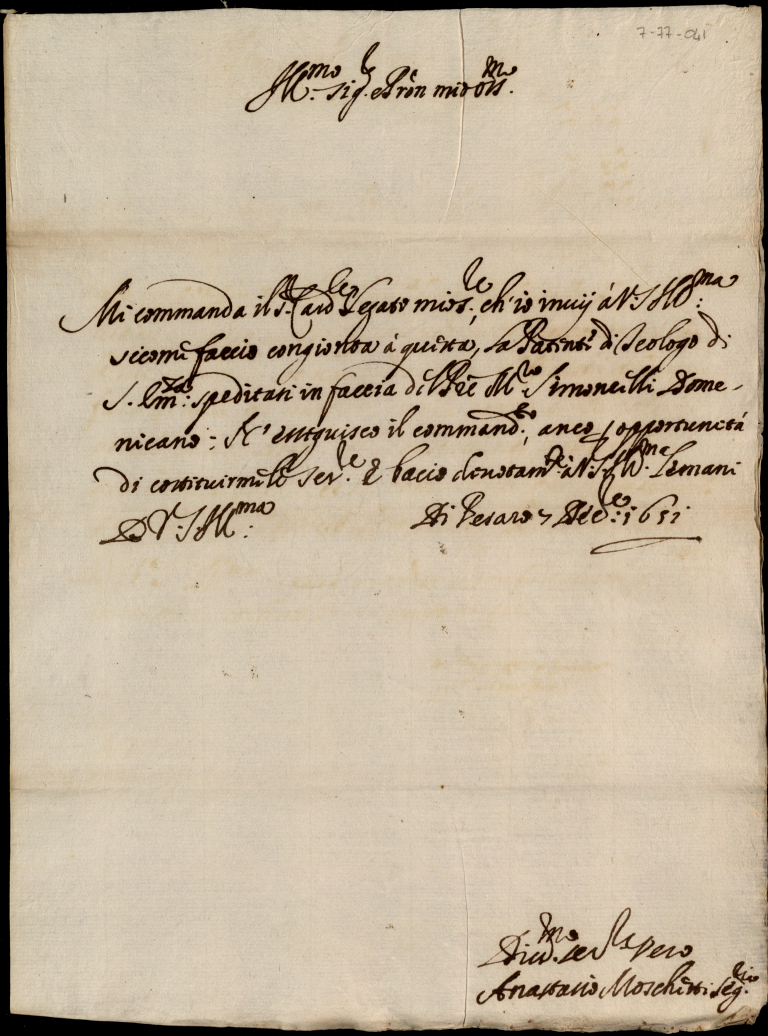 7-77-041
Ill.mo Sig.re e Pron mio oss.mo
Mi commanda il S.r Card.le Legato mio S.re, ch'io inuij à V.S. Ill.ma
sicome faccio congionta à questa, la Patente di Teologo di
S. Em.za: speditasi in faccia del Pre M.ro Simoncelli Dome-
nicano: N'esseguisco il command.to, anco opportunità
di costituirmele ser.re E bacio deuotam.te à V.S. Ill.ma le mani
D V.S. Ill.ma: Di Pesaro 7 Dec.e: 1651
Diu.mo ser.re vero
Anastasio Moschetti Seg.rio